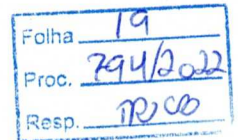 Folha 19
Proc. 794/2022
Resp.